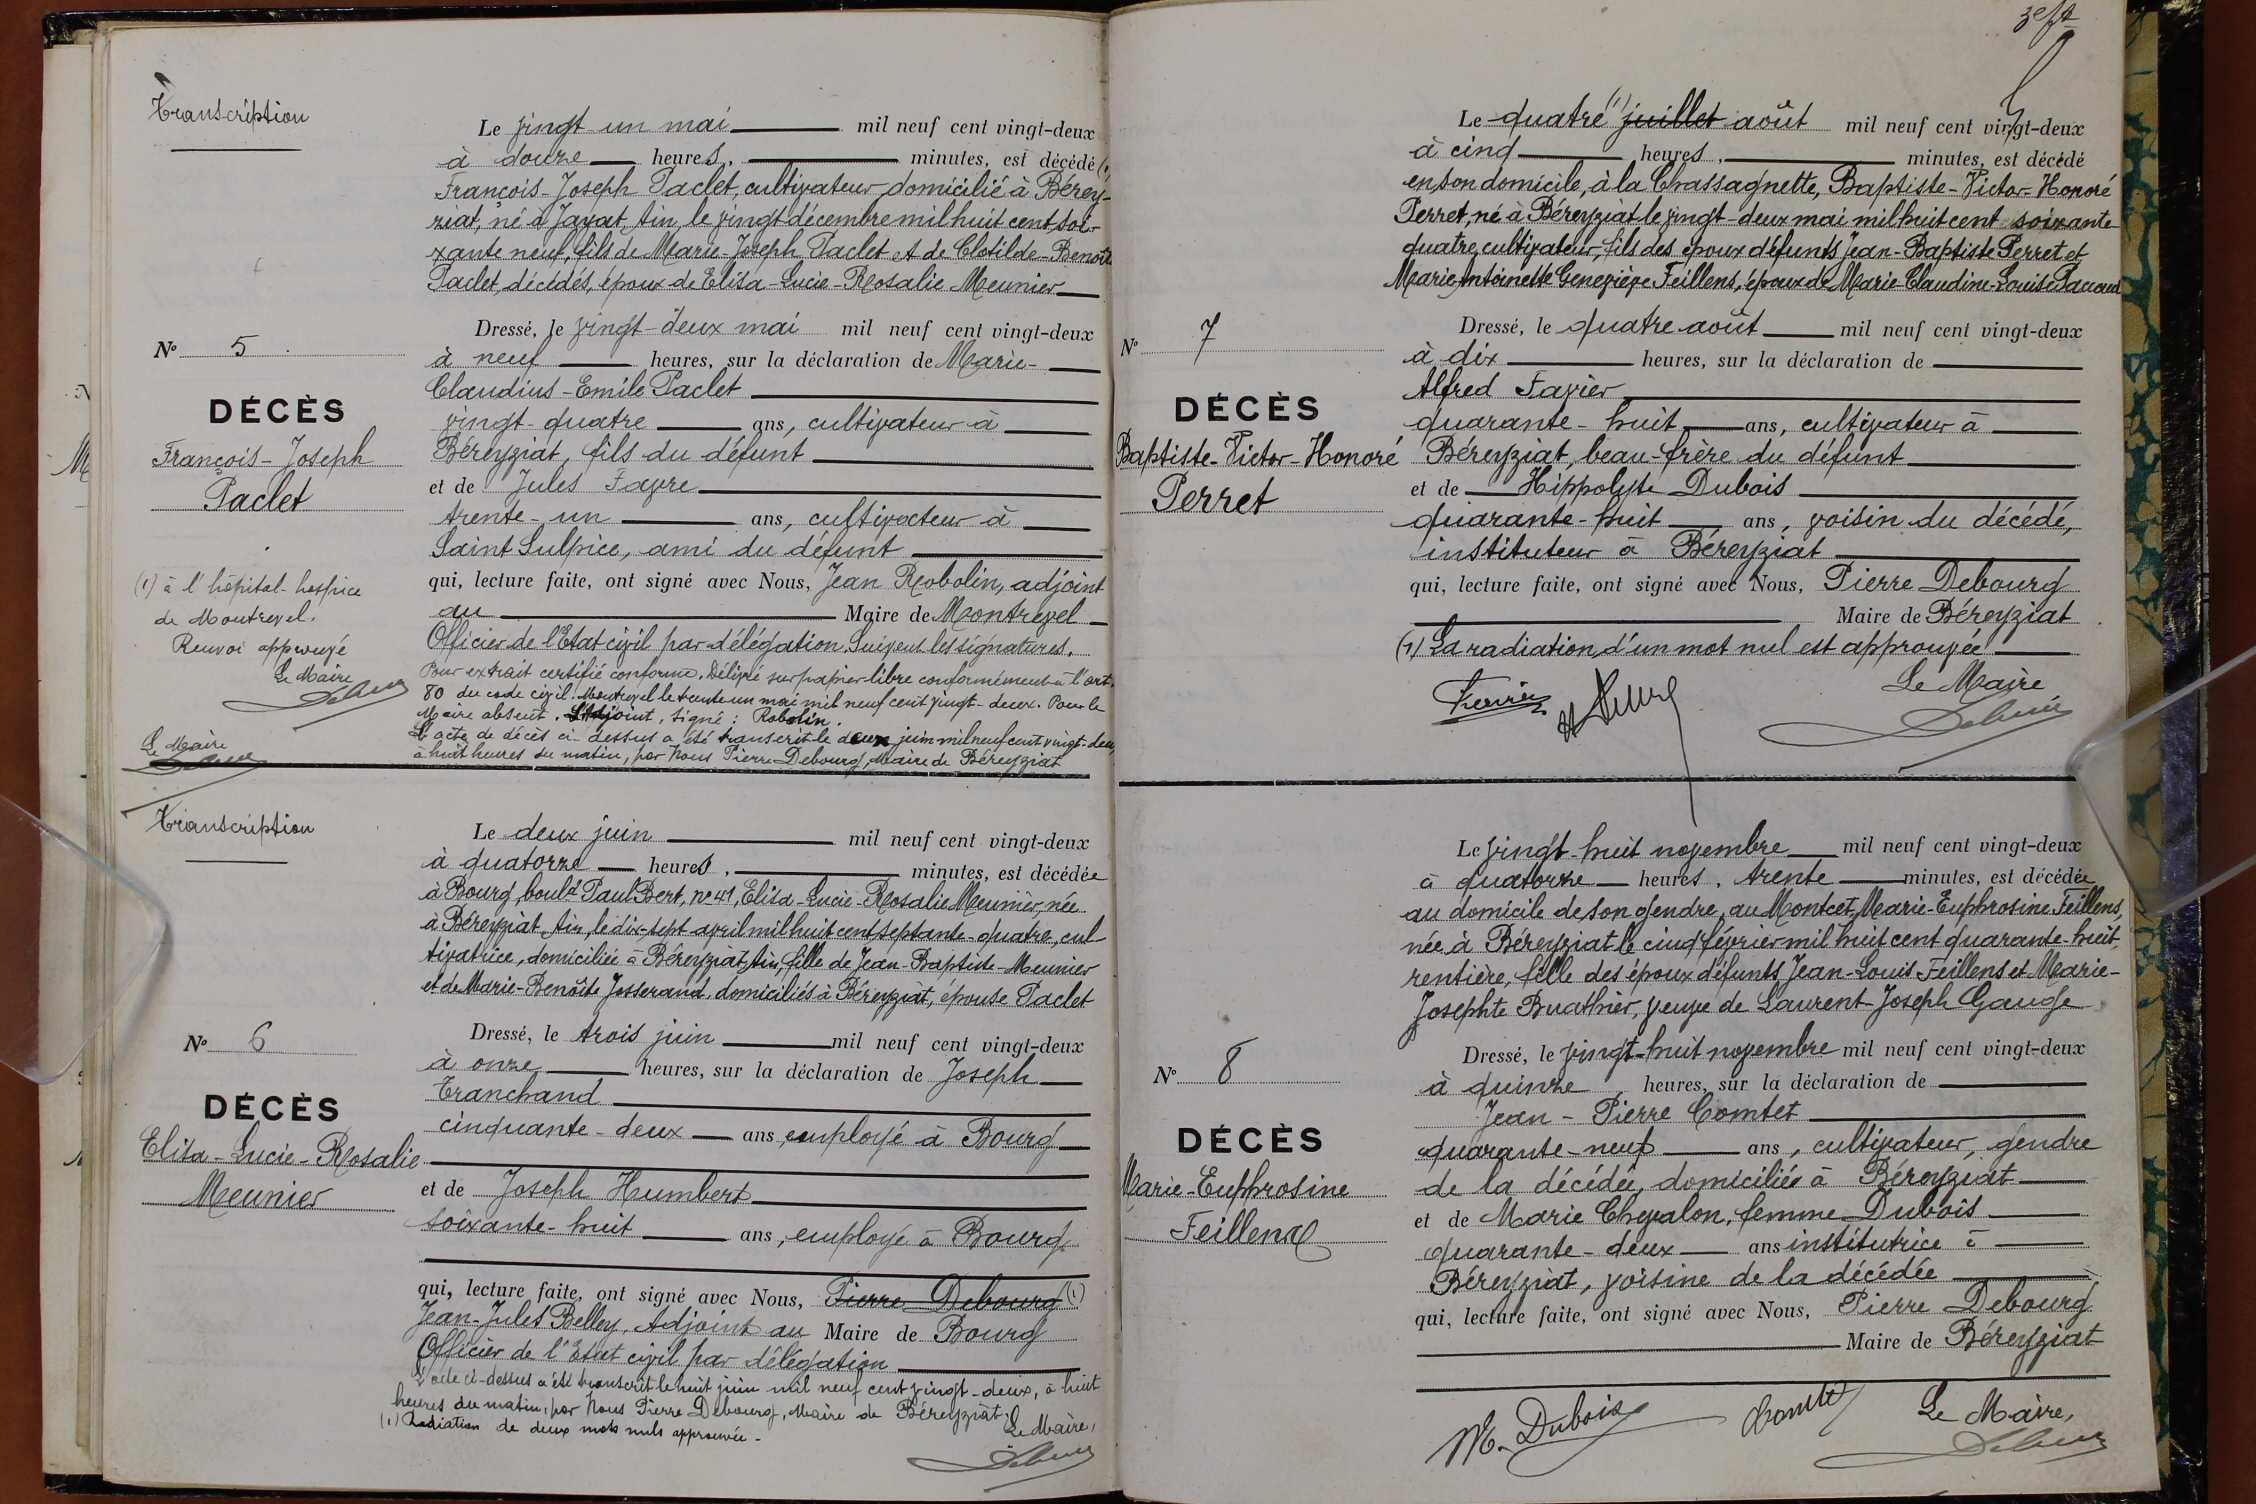 Transcription
Le vingt un mai mil neuf cent vingt-deux
à douze heures, minutes, est décédé (1)
François-Joseph Paclet, cultivateur, domicilié à Bérey-
ziat, né à Jayat, Ain, le vingt décembre mil huit cent soi-
xante neuf, fils de Marie-Joseph Paclet et de Clotilde-Benoîte
Paclet, décédés, époux de Elisa-Lucie-Rosalie Meunier
Nº 5
DÉCÈS
François-Joseph
Paclet
Dressé, le vingt-deux mai mil neuf cent vingt-deux
à neuf heures, sur la déclaration de Marie-
Claudius-Emile Paclet
vingt-quatre ans, cultivateur à
Béreyziat, fils du défunt
et de Jules Favre
trente-un ans, cultivateur à
Saint Sulpice, ami du défunt
qui, lecture faite, ont signé avec Nous, Jean Robolin, adjoint
au Maire de Montrevel
Officier de l'Etat civil par délégation. Suivent les signatures.
Pour extrait certifié conforme. Délivré sur papier libre conformément à l'art.
80 du code civil. Montrevel le trente un mai mil neuf cent vingt-deux. Pour le
Maire absent. L'Adjoint, signé : Robolin.
L'acte de décès ci-dessus a été transcrit le deux juin mil neuf cent vingt-deux,
à huit heures du matin, par Nous Pierre Debourg, Maire de Béreyziat
(1) à l'hôpital-hospice
de Montrevel.
Renvoi approuvé
Le Maire
Le Maire
Transcription
Le deux juin mil neuf cent vingt-deux
à quatorze heures, minutes, est décédée
à Bourg, boulᵈ Paul Bert, nº 41, Elisa-Lucie-Rosalie Meunier, née
à Béreyziat, Ain, le dix-sept avril mil huit cent septante-quatre, cul
tivatrice, domiciliée à Béreyziat, Ain, fille de Jean-Baptiste Meunier
et de Marie-Benoîte Josserand, domiciliés à Béreyziat, épouse Paclet
Nº 6
DÉCÈS
Elisa-Lucie-Rosalie
Meunier
Dressé, le trois juin mil neuf cent vingt-deux
à onze heures, sur la déclaration de Joseph
Tranchand
cinquante-deux ans, employé à Bourg
et de Joseph Humbert
soixante-huit ans, employé à Bourg
qui, lecture faite, ont signé avec Nous, Pierre Debourg (1)
Jean-Jules Belley, Adjoint au Maire de Bourg
Officier de l'Etat civil par délégation
L'acte ci-dessus a été transcrit le huit juin mil neuf cent vingt-deux, à huit
heures du matin, par Nous Pierre Debourg, Maire de Béreyziat.
(1) Radiation de deux mots nuls approuvée.-
Le Maire,
Le quatre (1) juillet août mil neuf cent vingt-deux
à cinq heures, minutes, est décédé
en son domicile, à la Chassagnette, Baptiste-Victor-Honoré
Perret, né à Béreyziat le vingt-deux mai mil huit cent soixante
quatre, cultivateur, fils des époux défunts Jean-Baptiste Perret et
Marie Antoinette Geneviève Feillens, époux de Marie-Claudine-Louise Pacoud
Nº 7
DÉCÈS
Baptiste-Victor-Honoré
Perret
Dressé, le quatre août mil neuf cent vingt-deux
à dix heures, sur la déclaration de
Alfred Favier
quarante-huit ans, cultivateur à
Béreyziat, beau-frère du défunt
et de Hippolyte Dubois
quarante-huit ans, voisin du décédé,
instituteur à Béreyziat
qui, lecture faite, ont signé avec Nous, Pierre Debourg
Maire de Béreyziat
(1) La radiation d'un mot nul est approuvée
Le Maire
Le vingt-huit novembre mil neuf cent vingt-deux
à quatorze heures, trente minutes, est décédée
au domicile de son gendre, au Montcet, Marie-Euphrosine Feillens,
née à Béreyziat le cinq février mil huit cent quarante-huit,
rentière, fille des époux défunts Jean-Louis Feillens et Marie-
Josephte Buathier, veuve de Laurent-Joseph Gauge
Nº 8
DÉCÈS
Marie-Euphrosine
Feillens
Dressé, le vingt-huit novembre mil neuf cent vingt-deux
à quinze heures, sur la déclaration de
Jean-Pierre Comtet
quarante-neuf ans, cultivateur, gendre
de la décédée, domiciliée à Béreyziat
et de Marie Chevalon, femme Dubois
quarante-deux ans institutrice à
Béreyziat, voisine de la décédée
qui, lecture faite, ont signé avec Nous, Pierre Debourg
Maire de Béreyziat
M. Dubois Comtet Le Maire,